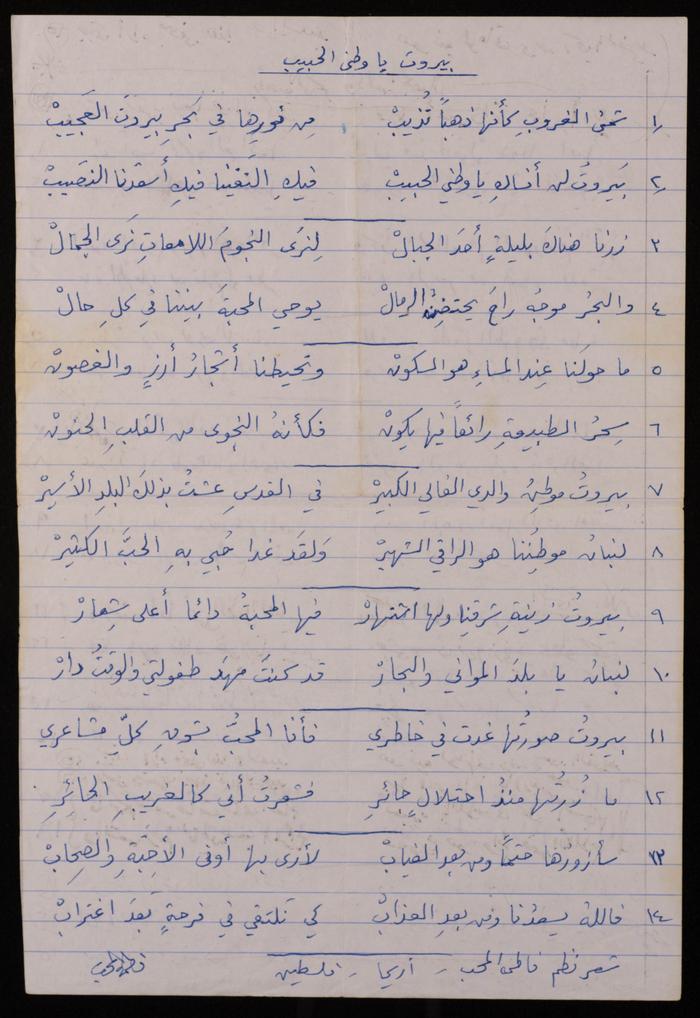 بيروت يا وطني الحبيب
١ شمسُ الغروبِ كأنها ذهباً تُذيبْ من نورِها في بَحرِ بيروتَ العَجيبْ
٢ بَيروتُ لن أنساكِ يا وطني الحبيبْ فيكِ التَقينا فيكِ أسعَدَنا النصَيبْ
٣ زرنا هناكَ بليلةٍ أحدَ الجبالْ لِنرَى النجومَ اللامعاتِ نَرَى الجمالْ
٤ والبحرُ موجهُ راحَ يحتضِنُ الرمالْ يوحي المحبةَ بيننا في كلِ حالْ
٥ ما حولَنا عِند المساءِ هو السكونْ وتحيطنا أشجارُ أرزٍ والغصونْ
٦ سِحرُ الطبيعةِ رائعاً فيها يكونْ فكأنهُ النجوى من القلبِ الحنونْ
٧ بيروتُ موطِنُ والدي الغالي الكبيرْ في القدسِ عشتُ بذلكَ البلدِ الأسيرْ
٨ لبنانُ موطِنُنا هو الراقي الشهيرْ وَلقَد غدا حُبي بهِ الحبَّ الكثيرْ
٩ بيروتُ زينةِ شرقِنا ولها اشتهارْ فيها المحبةُ دائما أعلى شِعارْ
١٠ لبنانُ يا بلدَ المواني والبحارْ قد كنتَ مهدَ طفولتي والوقتُ دارْ
١١ بيروتُ صورتُها غدت في خاطري فأنا المحبُّ بكلِّ مشاعري
١٢ ما زُرتُها منذُ احتلالٍ جائرِ فشعرتُ أني كالغريبِ الحائِرِ
١٣ سأزورُها حتماً ومن بعدِ الغيابْ لأرى بها أوفى الأحِبَةِ والصِحابْ
١٤ فاللهُ يسعدُنا ومن بعدِ العذابْ كي نَلتقي في فرحةٍ بَعدَ اغترابْ
شعر نظم فاطمى المحب - أريحا - فلسطين